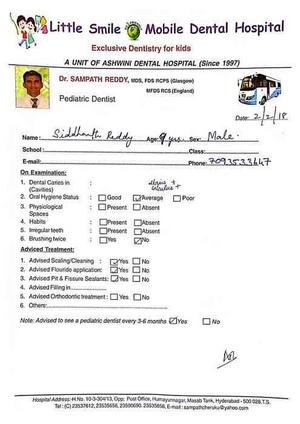 Little Smile Mobile Dental Hospital
Exclusive Dentistry for kids
A UNIT OF ASHWINI DENTAL HOSPITAL (Since 1997)
Dr. SAMPATH REDDY, MDS, FDS RCPS (Glasgow)
MFDS RCS (England)
Pediatric Dentist
Date: 2/2/18
Name: Siddhanth Reddy Age: 9 yrs. Sex: Male.
School: Class:
E-mail: Phone: 7093533647
On Examination:
1. Dental Caries in (Cavities) :
2. Oral Hygiene Status : Good Average Poor
3. Physiological Spaces : Present Absent
4. Habits : Present Absent
5. Irregular teeth : Present Absent
6. Brushing twice : Yes No
Adviced Treatment:
1. Advised Scaling/Cleaning : Yes No
2. Advised Flouride application: Yes No
3. Advised Pit & Fissure Sealants: Yes No
4. Advised Filling in
5. Advised Orthodontic treatment : Yes No
Note: Advised to see a pediatric dentist every 3-6 months Yes No
Hospital Address: H.No. 10-3-304/13, Opp. Post Office, Humayunnagar, Masab Tank, Hyderabad - 500 028 T.S.
Tel : (C) 23537612, 23535658, 23590690, 23535658, E-mail : sampathcheruku@yahoo.com